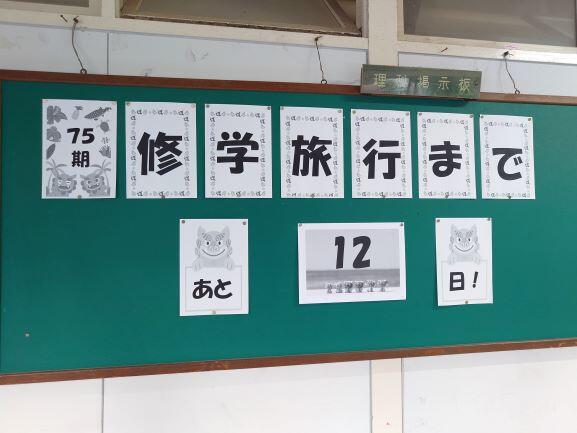 理科掲示板
75期
修学旅行まで
あと 12 日！